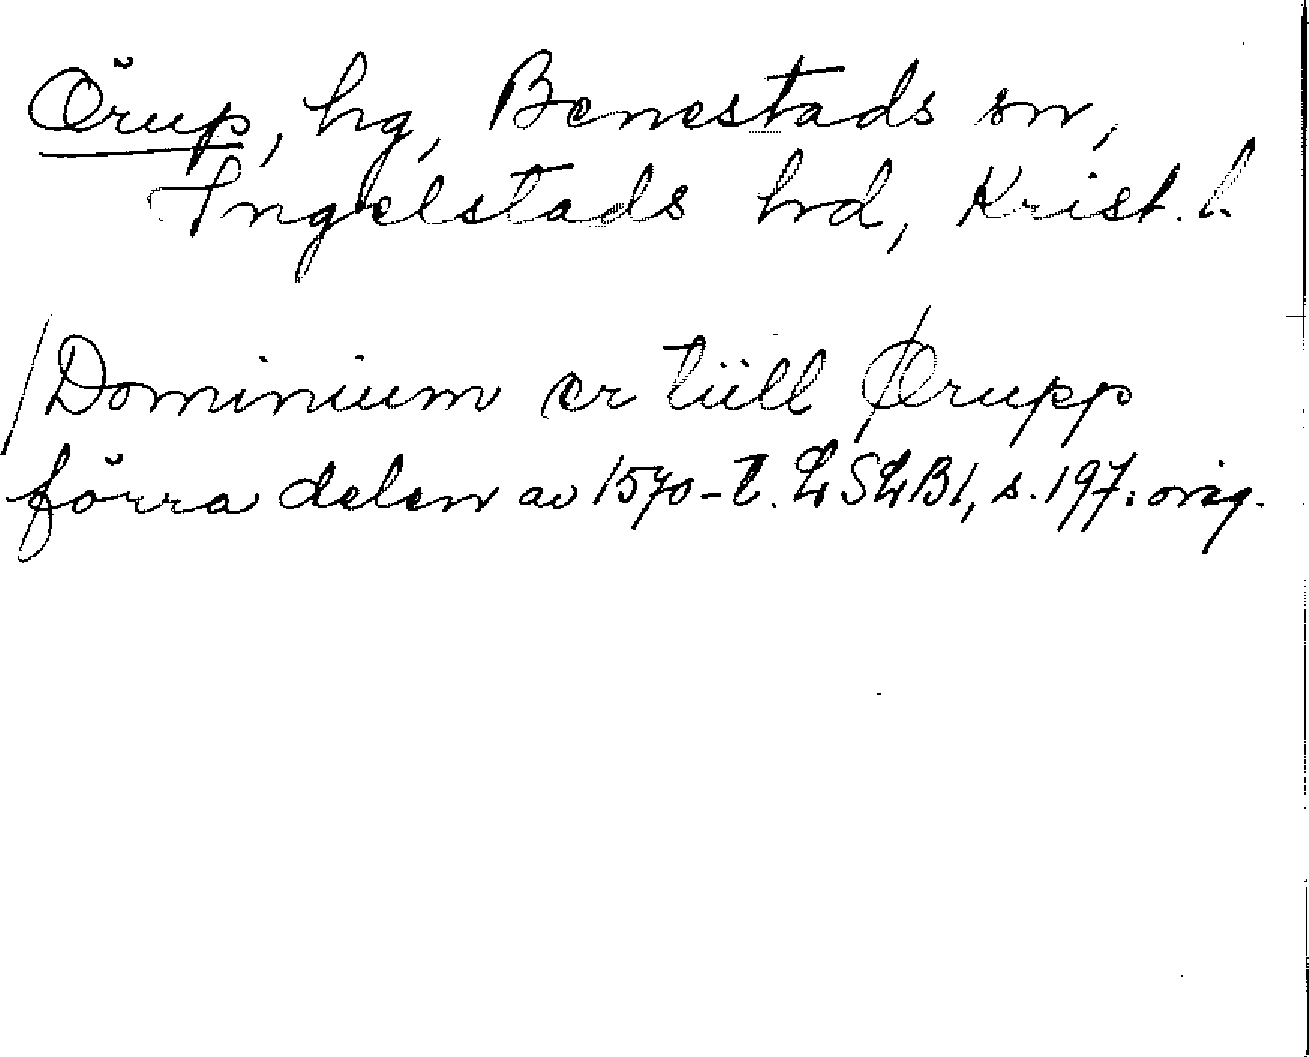 Örup, hg, Benestads sn,
Ingelstads hrd, Krist. l.
/Dominium er tiill Ørupp
förra delen av 1570-t. LSLB1, s. 197. orig.